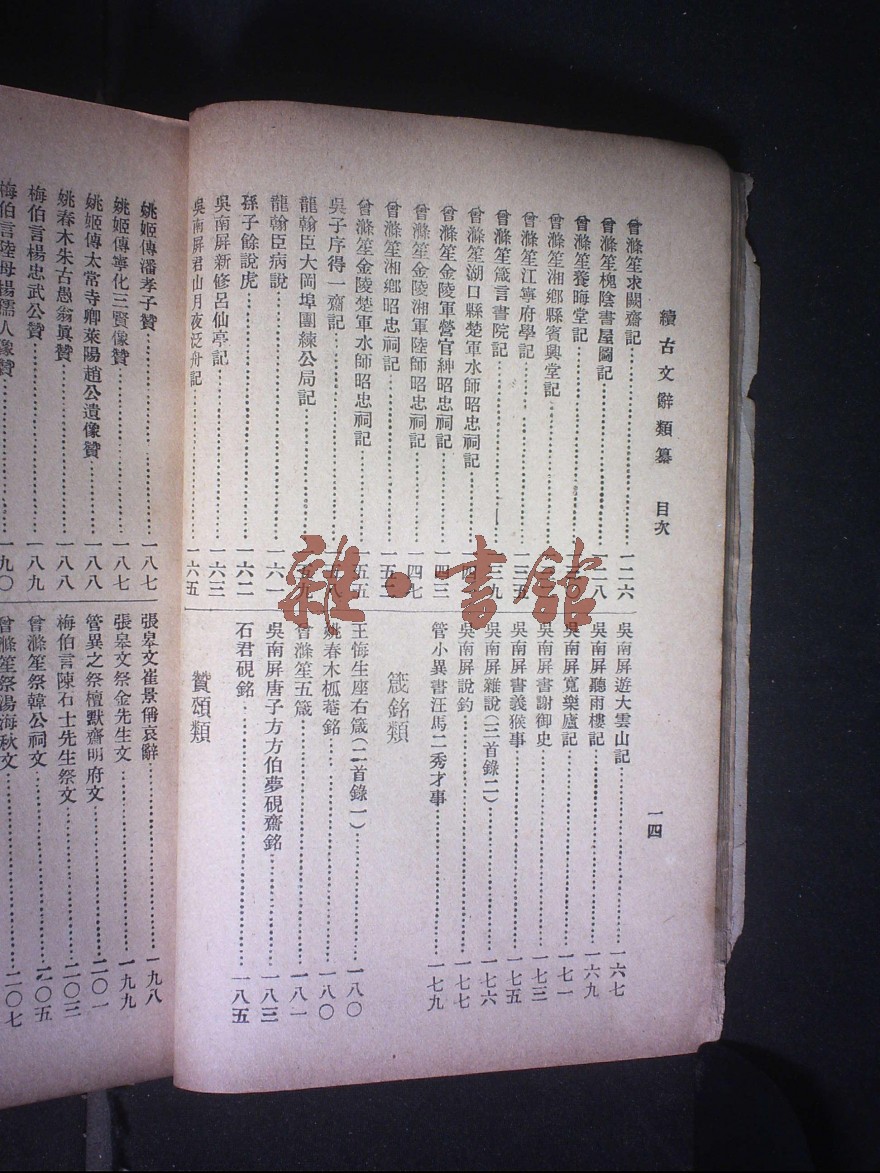 續古文辭類纂 目次
曾滌笙求闕齋記……一二六
曾滌笙槐陰書屋圖記……一二八
曾滌笙養晦堂記……
曾滌笙湘鄉縣賓興堂記……
曾滌笙江寧府學記……一三五
曾滌笙箴言書院記……一三九
曾滌笙湖口縣楚軍水師昭忠祠記……
曾滌笙金陵軍營官紳昭忠祠記……一四三
曾滌笙金陵湘軍陸師昭忠祠記……一四七
曾滌笙湘鄉昭忠祠記……
曾滌笙金陵楚軍水師昭忠祠記……一五五
吳子序得一齋記……一五八
龍翰臣大岡埠團練公局記……一五九
龍翰臣病說……一六一
孫子餘說虎……一六二
吳南屏新修呂仙亭記……一六三
吳南屏君山月夜泛舟記……一六五
吳南屏遊大雲山記……一六七
吳南屏聽雨樓記……一六九
吳南屏寬樂廬記……一七一
吳南屏書謝御史……一七三
吳南屏書義猴事……一七五
吳南屏雜說(三首錄二)……一七六
吳南屏說釣……一七七
管小異書汪馬二秀才事……一七九
箴銘類
王悔生座右箴(二首錄一)……一八〇
姚春木柧菴銘……一八〇
曾滌笙五箴……一八一
吳南屏唐子方方伯夢硯齋銘……一八三
石君硯銘……一八五
贊頌類
一四
姚姬傳潘孝子贊……一八七
姚姬傳寧化三賢像贊……一八七
姚姬傳太常寺卿萊陽趙公遺像贊……一八八
姚春木朱古愚翁眞贊……一八八
梅伯言楊忠武公贊……一八九
梅伯言陸母楊孺人像贊……一九〇
張皋文崔景偁哀辭……一九八
張皋文祭金先生文……一九九
管異之祭檀默齋明府文……二〇一
梅伯言陳石士先生祭文……二〇三
曾滌笙祭韓公祠文……二〇五
曾滌笙祭湯海秋文……二〇七
雜·書館